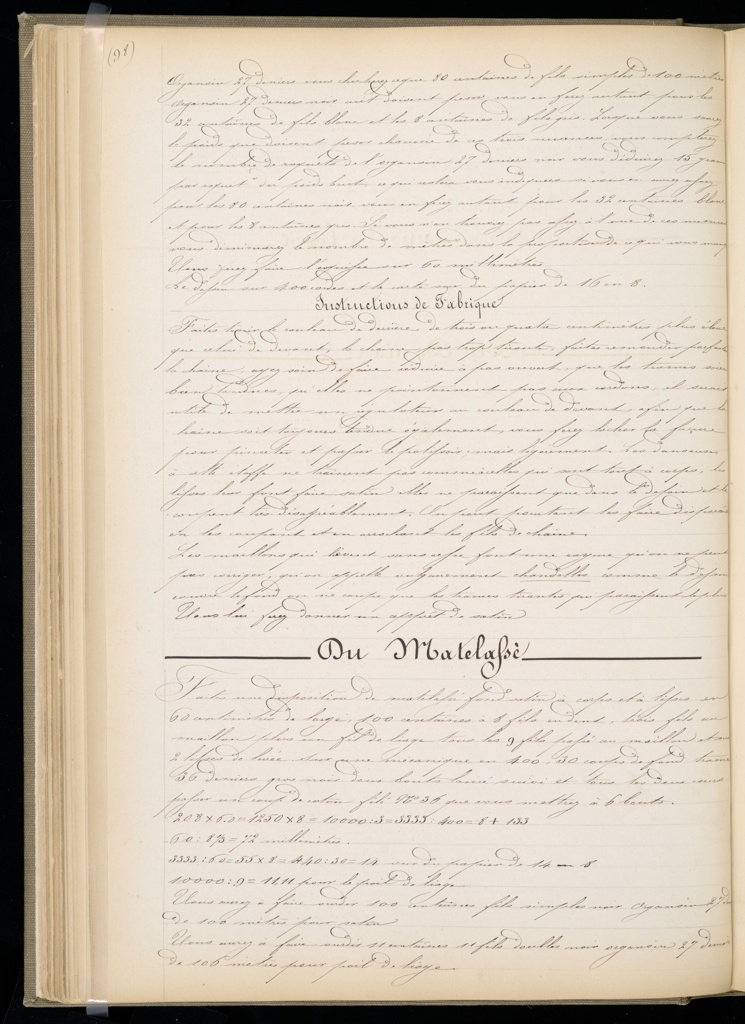 (98)
organsin 27 deniers vous cherchez ce que 80 centaines de fils simples de 100 mètres
organsin 27 deniers noir cuit doivent peser, vous en ferez autant pour les
32 centaines de fils blanc et les 8 centaines de fils gris. Lorsque vous aurez
le poids que doivent peser chacune de ces trois nuances, vous compterez
le nombre de de l'organsin 27 deniers noir vous déduirez 15 grammes
par du poids brut, ce que restera vous indiquera si vous en avez assez
pour les 80 centaines noir, vous en ferez autant pour les 32 centaines blanc
et pour les 8 centaines gris. Si vous n'en trouvez pas assez à l'une de ces nuances
vous diminuerez le nombre de mètres dans la proportion de ce qui vous
Vous ferez faire l'esquisse sur 60 millimètres.
Le dessin sur 400 cordes et la carte sur du papier de 16 en 8.
Instructions de Fabrique
Faites tenir le rouleau de derrière de trois ou quatre centimètres plus élevé
que celui de devant, la chaîne pas trop tirant, faites remonder parfait
la chaîne, ayez soin de faire à pas ouvert, que les trames soient
bien tendues, qu'elles ne pas aux cordons, il serait
utile de mettre un régulateur au rouleau de devant afin que la
chaîne soit toujours tendue également, vous ferez la façure
pour et passer le polissoir, mais légèrement. Les danseuses
à cette étoffe ne traînent pas comme à celles qui sont tout à corps, les
lisses leur font faire satin elles ne paraissent que dans le dessin et le
coupent très désagréablement. On peut pourtant les faire disparaître
en les coupant et en arrachant les fils de chaîne.
Les maillons qui lèvent sans cesse font une rayure qu'on ne peut
pas corriger, qu'on appelle vulgairement chandelles comme le dessin
contre le fond on ne coupe que les trames tirantes qui paraissent le plus
Vous lui ferez donner un apprêt de satin
Du Matelassé
Faites une disposition de matelassé fond satin à corps et à lisses en
60 centimètres de large, 100 centaines à 8 fils en dent, trois fils au
maillon plus un fil de liage tous les 9 fils passé au maillon et sur
2 lisses de levée sur une mécanique en 400 - 30 corps de fond trame
36 deniers gros noir deux bouts lancé suivi et tous les deux coups
passer un coup de coton filé N° 36 que vous mettrez à 6 bouts.
208 × 6.0 = 1250 × 8 = 10000 : 3 = 3333 : 400 = 8 + 133
60 : 8⅓ = 72 millimètres.
3333 : 60 = 55 × 8 = 440 : 30 = 14 sur du papier de 14 en 8
10000 : 9 = 11,11 pour le poil de liage
Vous aurez à faire ourdir 100 centaines fils simples noir organsin 27 d
de 100 mètres pour satin
Vous aurez à faire ourdir 11 centaines 11 fils doubles noir organsin 27 deniers
de 106 mètres pour poil de liage.